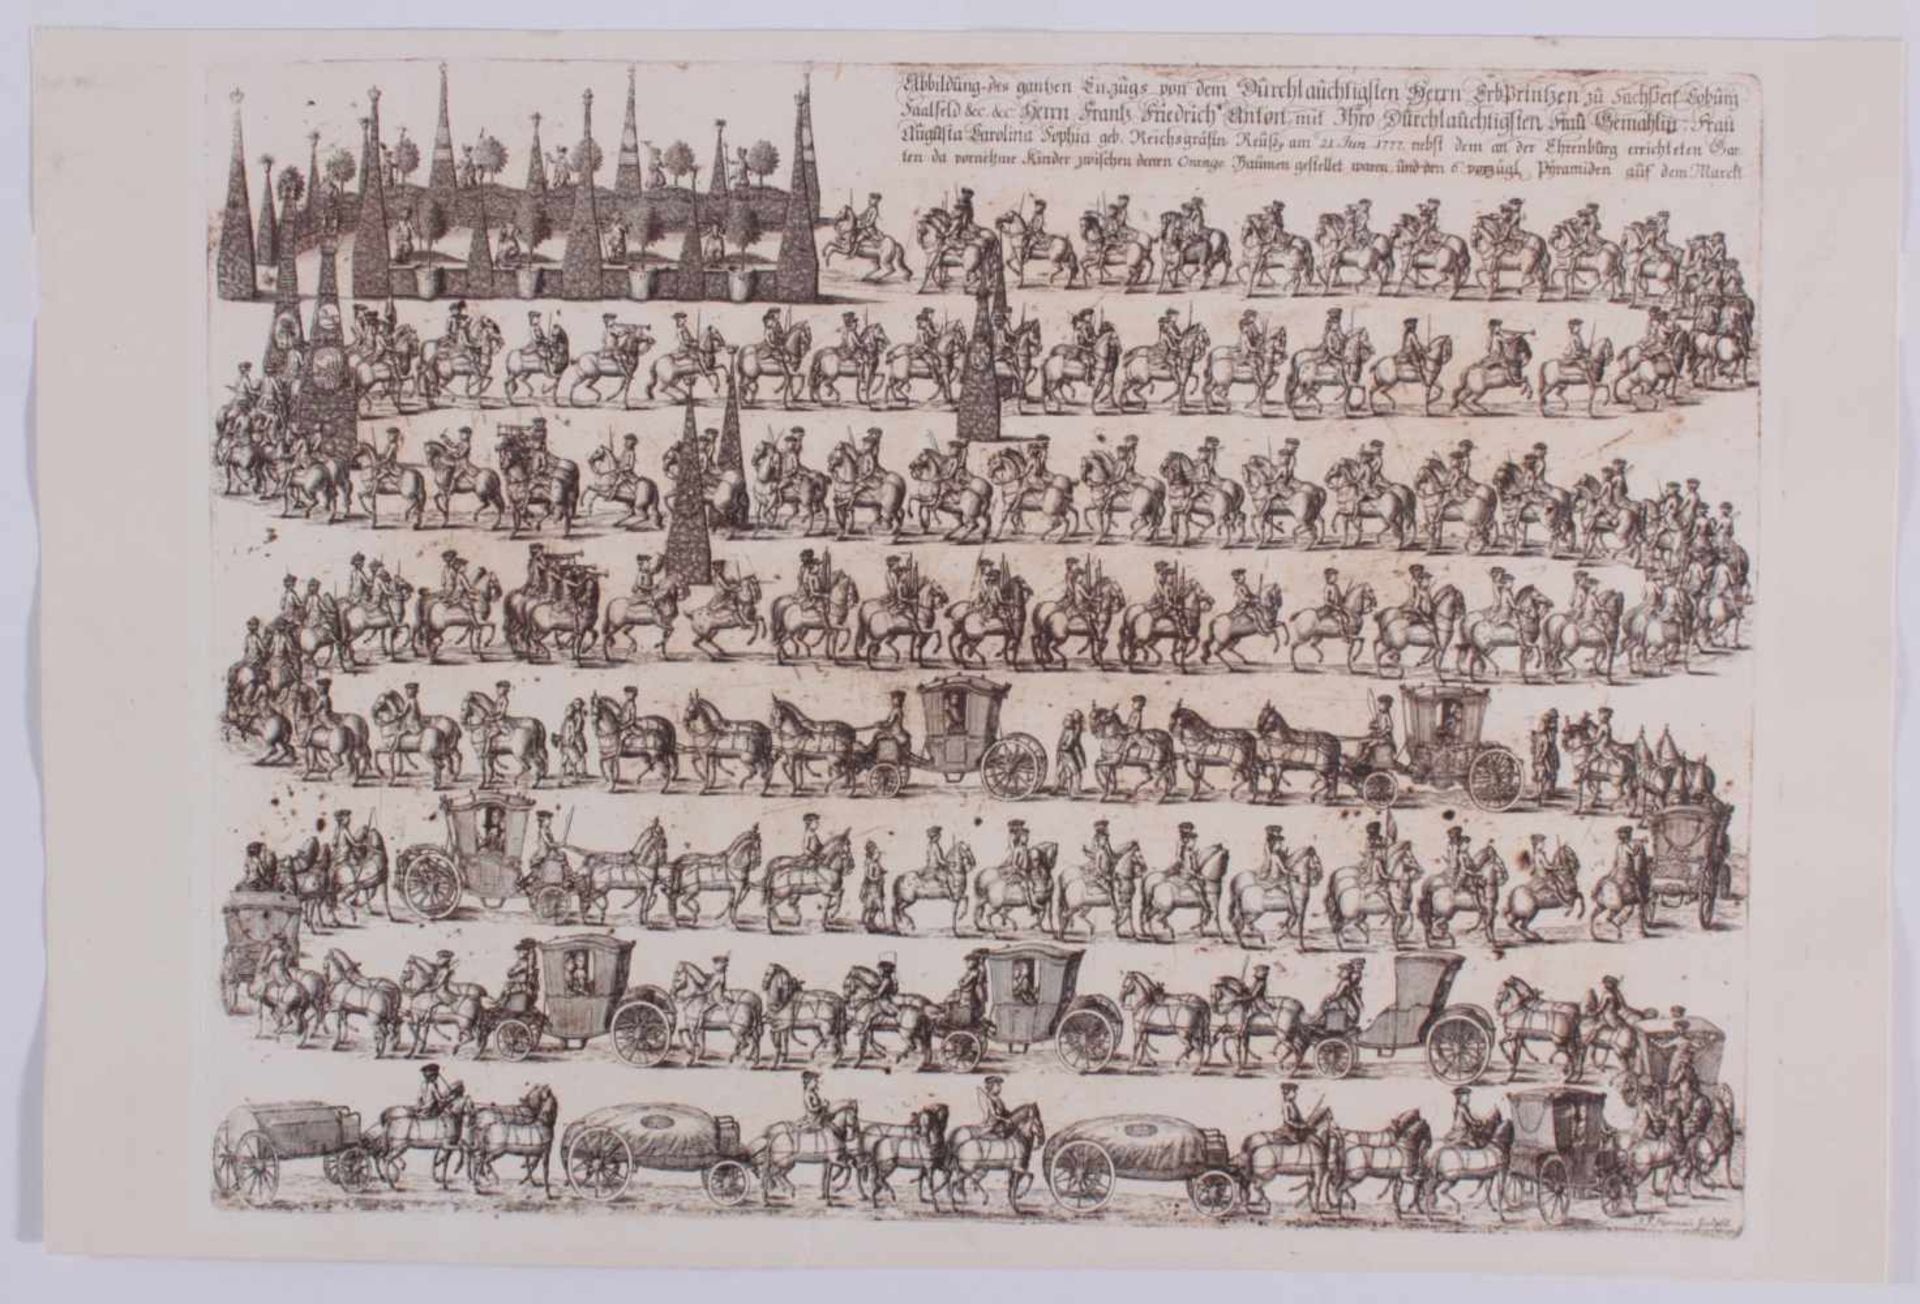 Abbildung des gantzen Einzugs von dem Dürchlaüchtigsten Herrn ErbPrintzen zü Sachßen Cobürg
Saalfeld &c. &c: Herrn Frantz Friedrich Anton, mit Ihro Dürchlaüchtigsten Fraü Gemahlin: Fraü
Aügüsta Carolina Sophia geb. Reichsgräfin Reüß, am 21 Jun. 1777. nebst dem an der Ehrenbürg errichteten Gar
ten da vornehme Kinder zwischen denen Orange Baümen gestellet waren, ünd den 6 vorzügl. Pÿramiden auf dem Marckt